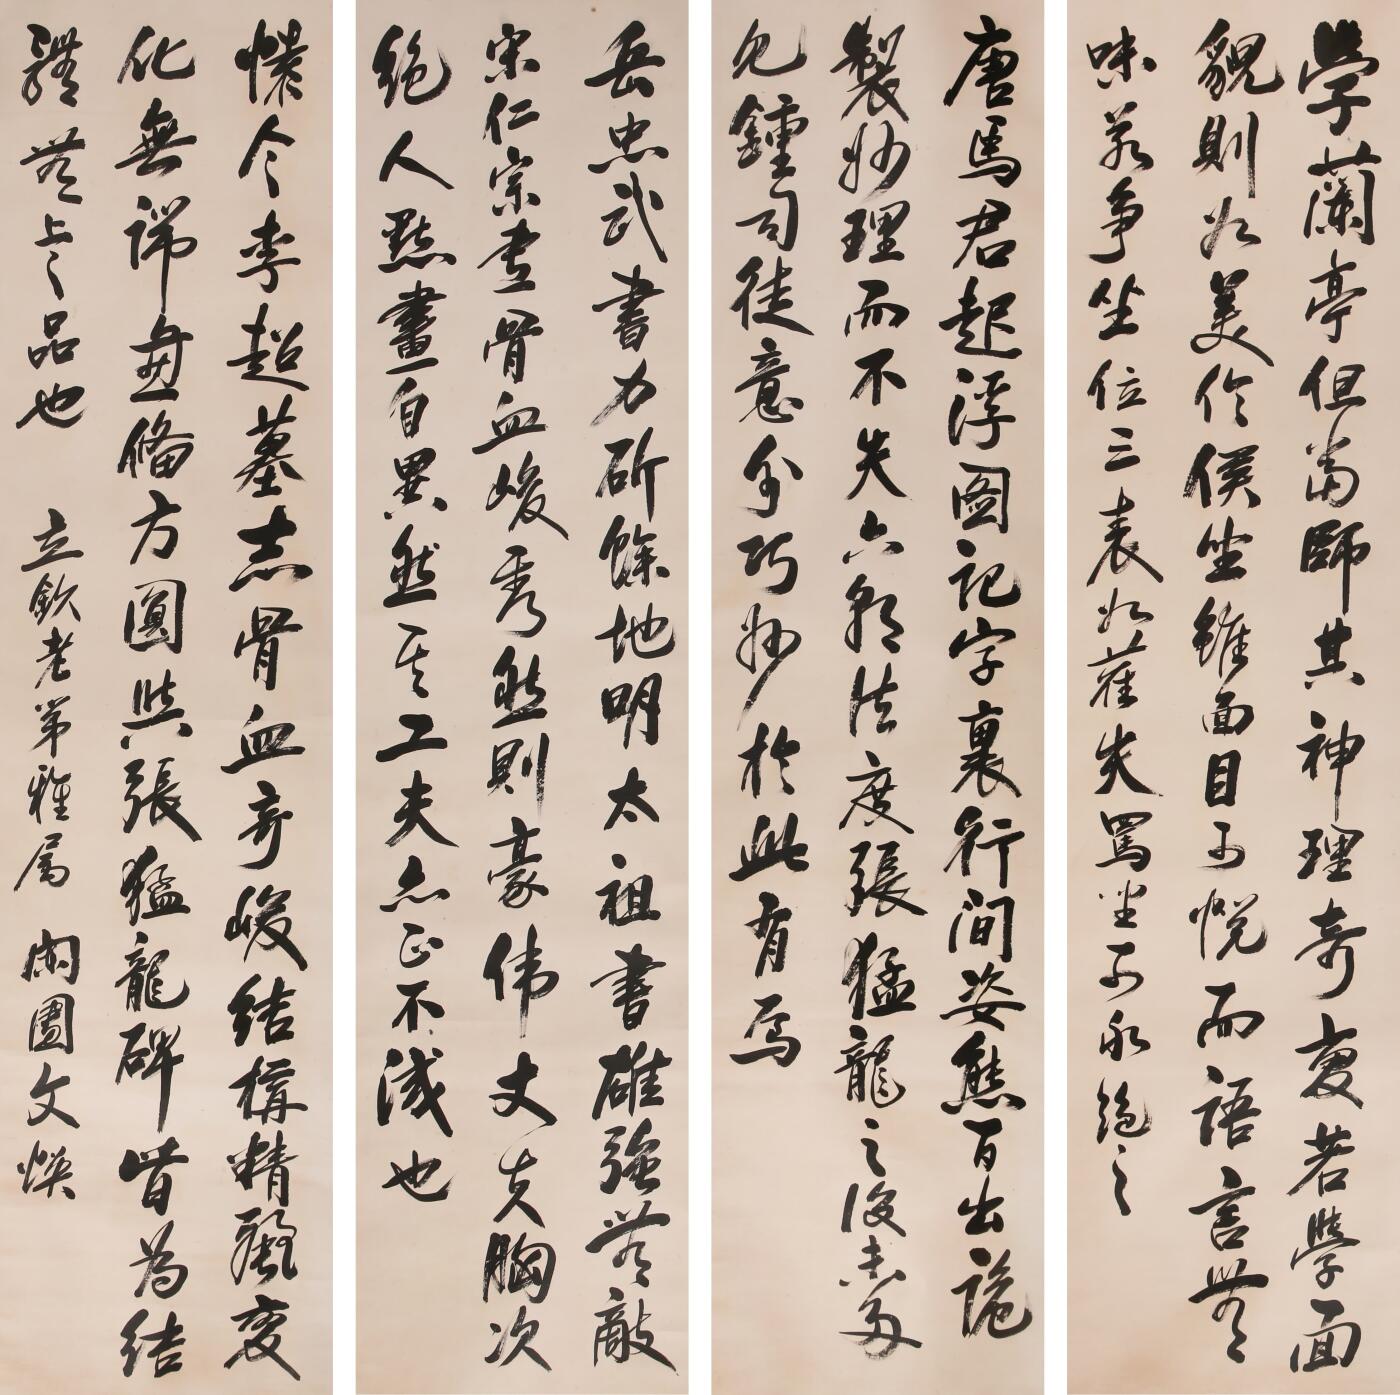 學蘭亭但當師其神理奇變若學面
貌則如美伶候坐雖面目可悅而語言無
味若爭坐位三表如灌夫罵坐可永絕之
唐馬君起浮圖記字裏行間姿態百出詭
製妙理而不失六朝法度張猛龍之後未多
見鍾司徒意外巧妙於此有焉
岳忠武書力斫餘地明太祖書雄強無敵
宋仁宗書骨血峻秀然則豪偉丈夫胸次
絕人點畫自異然其工夫亦正不淺也
懷令李超墓志骨血奇峻結構精嚴變
化無端畫備方圓與張猛龍碑皆為結
體無上之品也 立欽老弟雅屬 閑園文煥